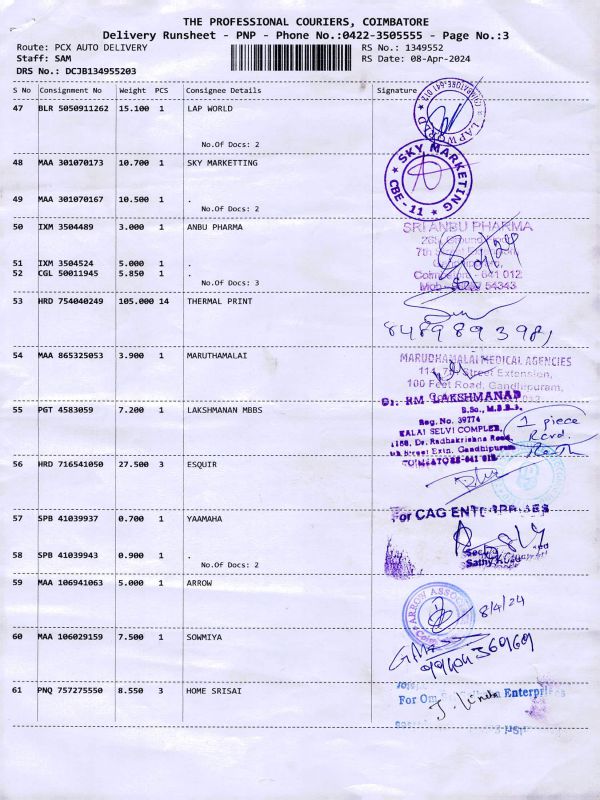 THE PROFESSIONAL COURIERS, COIMBATORE
Delivery Runsheet - PNP - Phone No.:0422-3505555 - Page No.:3
Route: PCX AUTO DELIVERY RS No.: 1349552
Staff: SAM RS Date: 08-Apr-2024
DRS No.: DCJB134955203
S No Consignment No Weight PCS Consignee Details Signature
47 BLR 5050911262 15.100 1 LAP WORLD
No.Of Docs: 2
LAP WORLD
48 MAA 301070173 10.700 1 SKY MARKETTING
SKY MARKETING
CBE - 11
49 MAA 301070167 10.500 1 .
No.Of Docs: 2
50 IXM 3504489 3.000 1 ANBU PHARMA
SRI ANBU PHARMA
51 IXM 3504524 5.000 1 .
52 CGL 50011945 5.850 1 .
No.Of Docs: 3
641 012
53 HRD 754040249 105.000 14 THERMAL PRINT
8489893981
54 MAA 865325053 3.900 1 MARUTHAMALAI
MARUDHAMALAI MEDICAL AGENCIES
Street Extension,
100 Feet Road, Gandhipuram,
55 PGT 4583059 7.200 1 LAKSHMANAN MBBS
Dr. RM LAKSHMANAN
B.Sc., M.B.B.S.
Reg. No. 39774
KALAI SELVI COMPLEX,
1 piece
Rcvd.
56 HRD 716541050 27.500 3 ESQUIR
57 SPB 41039937 0.700 1 YAAMAHA
For CAG ENTERPRISES
58 SPB 41039943 0.900 1 .
No.Of Docs: 2
59 MAA 106941063 5.000 1 ARROW
8/4/24
60 MAA 106029159 7.500 1 SOWMIYA
61 PNQ 757275550 8.550 3 HOME SRISAI
For Om Enterprises